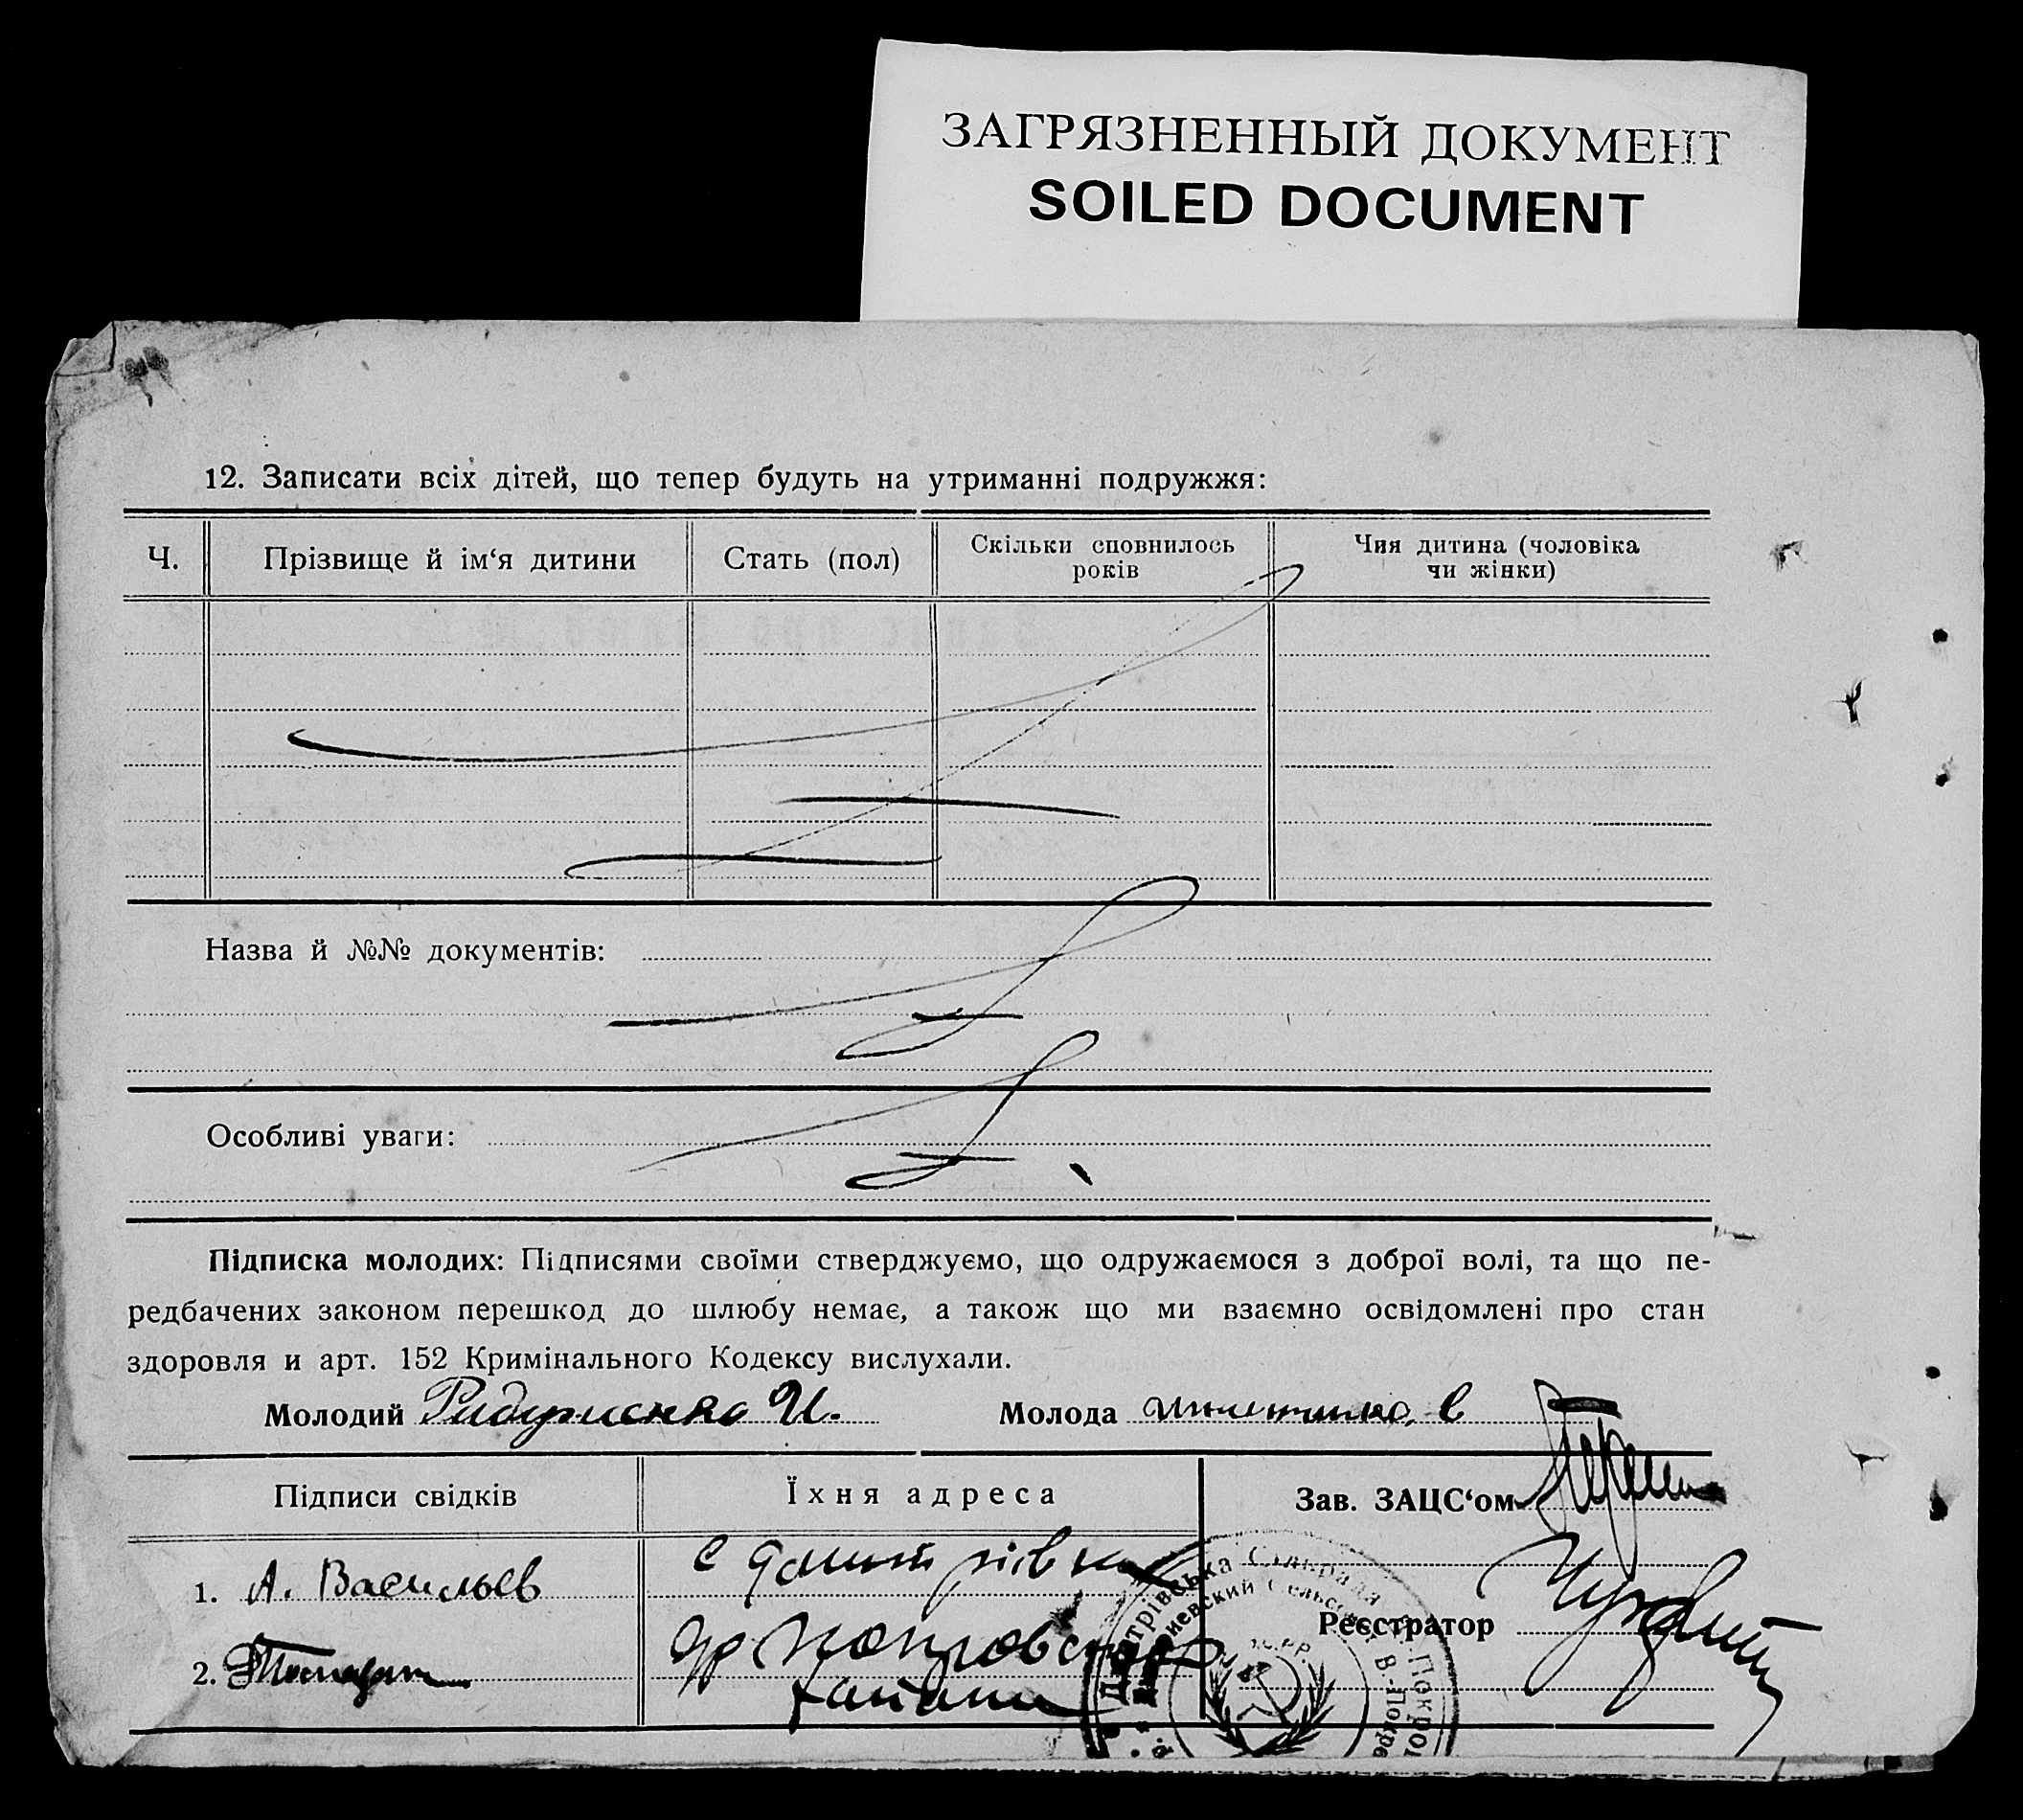 ЗАГРЯЗНЕННЫЙ ДОКУМЕНТ
SOILED DOCUMENT
12. Записати всіх дітей, що тепер будуть на утриманні подружжя:
Ч. Прізвище й ім‘я дитини Стать (пол) Скільки сповнилось років Чия дитина (чоловіка чи жінки)
Назва й №№ документів:
Особливі уваги:
Підписка молодих: Підписями своїми стверджуємо, що одружаємося з доброї волі, та що пе-
редбачених законом перешкод до шлюбу немає, а також що ми взаємно освідомлені про стан
здоровля и арт. 152 Кримінального Кодексу вислухали.
Молодий И. Молода
Підписи свідків Їхня адреса Зав. ЗАЦС‘ом
1. А. Васильєв с
Реєстратор
2.